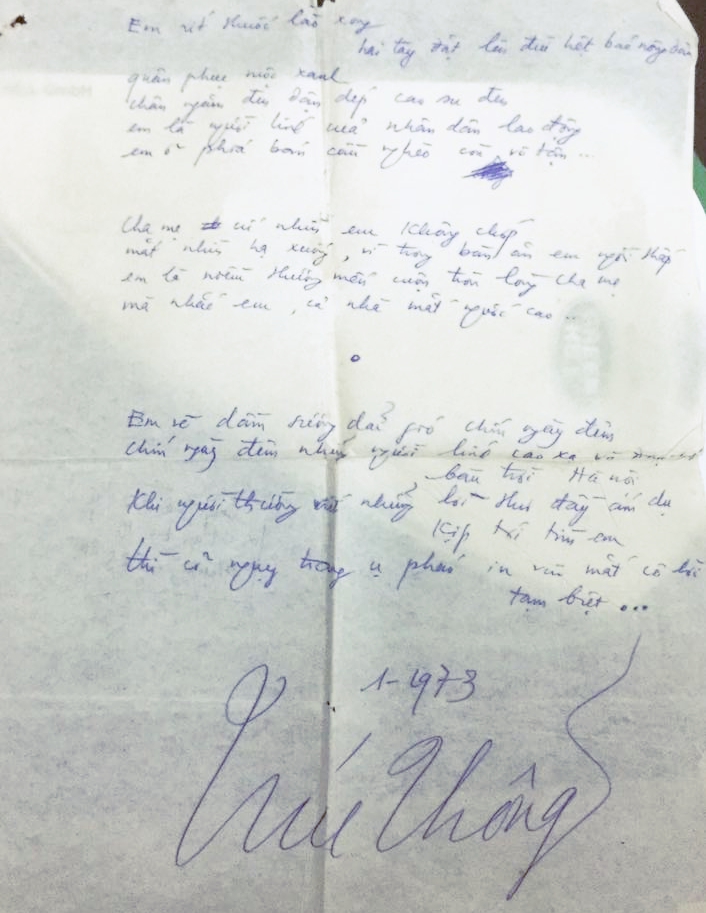 Em rít thuốc lào xong
hai tay đặt lên đùi hệt bác nông dân
quân phục màu xanh
chân ngăm đen dận dép cao su đen
em là người lính của nhân dân lao động
em ở phía bần cùng nghèo còn vô tận...
Cha mẹ cứ nhìn em không chớp
mắt nhìn hạ xuống, vì trong bàn ăn em ngồi thấp
em là niềm thương mến cuộn tròn lòng cha mẹ
mà nhắc em, cả nhà mắt ngước cao...
Em về dầm sương dãi gió chín ngày đêm
chín ngày đêm những người lính cao xạ vô
bầu trời Hà Nội
Khi người thương viết những lời thư đầy ám dụ
Kịp tới tim em
thì cỏ ngụy trang ụ pháo in vào mắt cô lời
tạm biệt...
1-1973
Trúc Thông